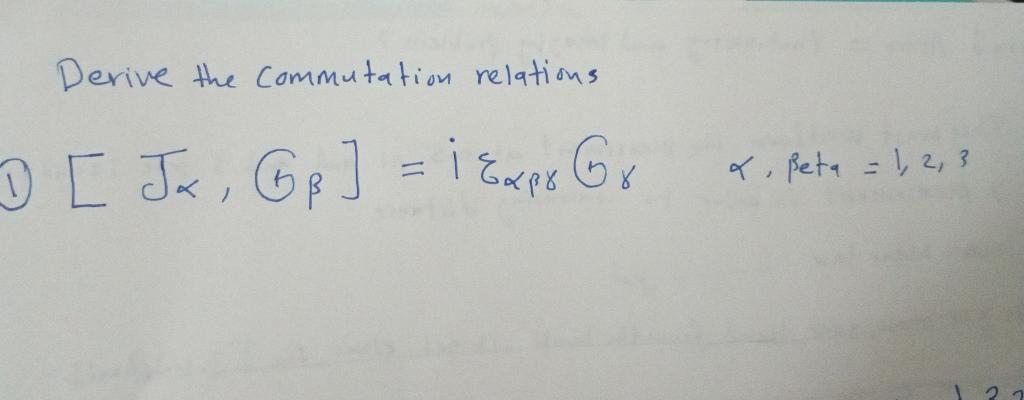 Derive the commutation relations
① [ Jα, Gβ ] = i εαβγ Gγ α, Beta = 1, 2, 3